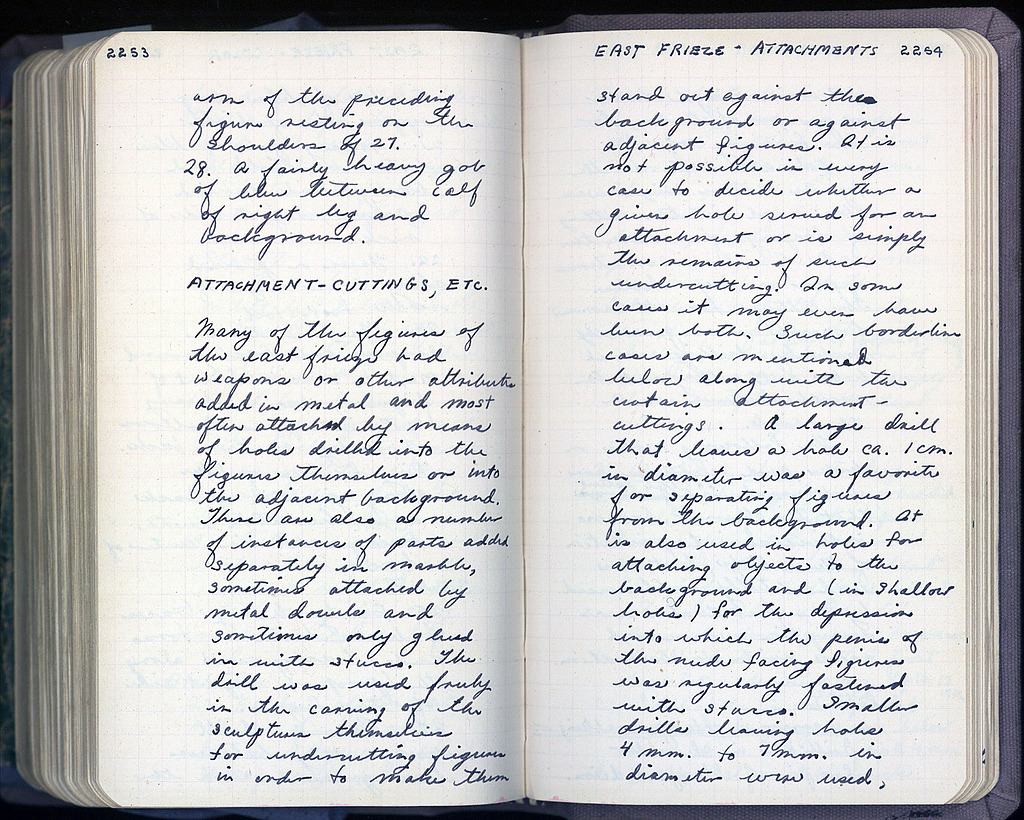 2253
arm of the preceding
figure resting on the
shoulders of 27.
28. A fairly heavy gob
of blue between calf
of right leg and
background.
ATTACHMENT-CUTTINGS, ETC.
Many of the figures of
the east frieze had
weapons or other attributes
added in metal and most
often attached by means
of holes drilled into the
figures themselves or into
the adjacent background.
There are also a number
of instances of parts added
separately in marble,
sometimes attached by
metal dowels and
sometimes only glued
in with stucco. The
drill was used freely
in the carving of the
sculptures themselves
for undercutting figures
in order to make them
EAST FRIEZE - ATTACHMENTS 2254
stand out against the
background or against
adjacent figures. It is
not possible in every
case to decide whether a
given hole served for an
attachment or is simply
the remains of such
undercutting. In some
cases it may even have
been both. Such borderline
cases are mentioned
below along with the
certain attachment-
cuttings. A large drill
that leaves a hole ca. 1cm.
in diameter was a favorite
for separating figures
from the background. It
is also used in holes for
attaching objects to the
background and (in shallow
holes) for the depression
into which the penis of
the nude facing figures
was regularly fastened
with stucco. Smaller
drills leaving holes
4 mm. to 7mm. in
diameter were used,